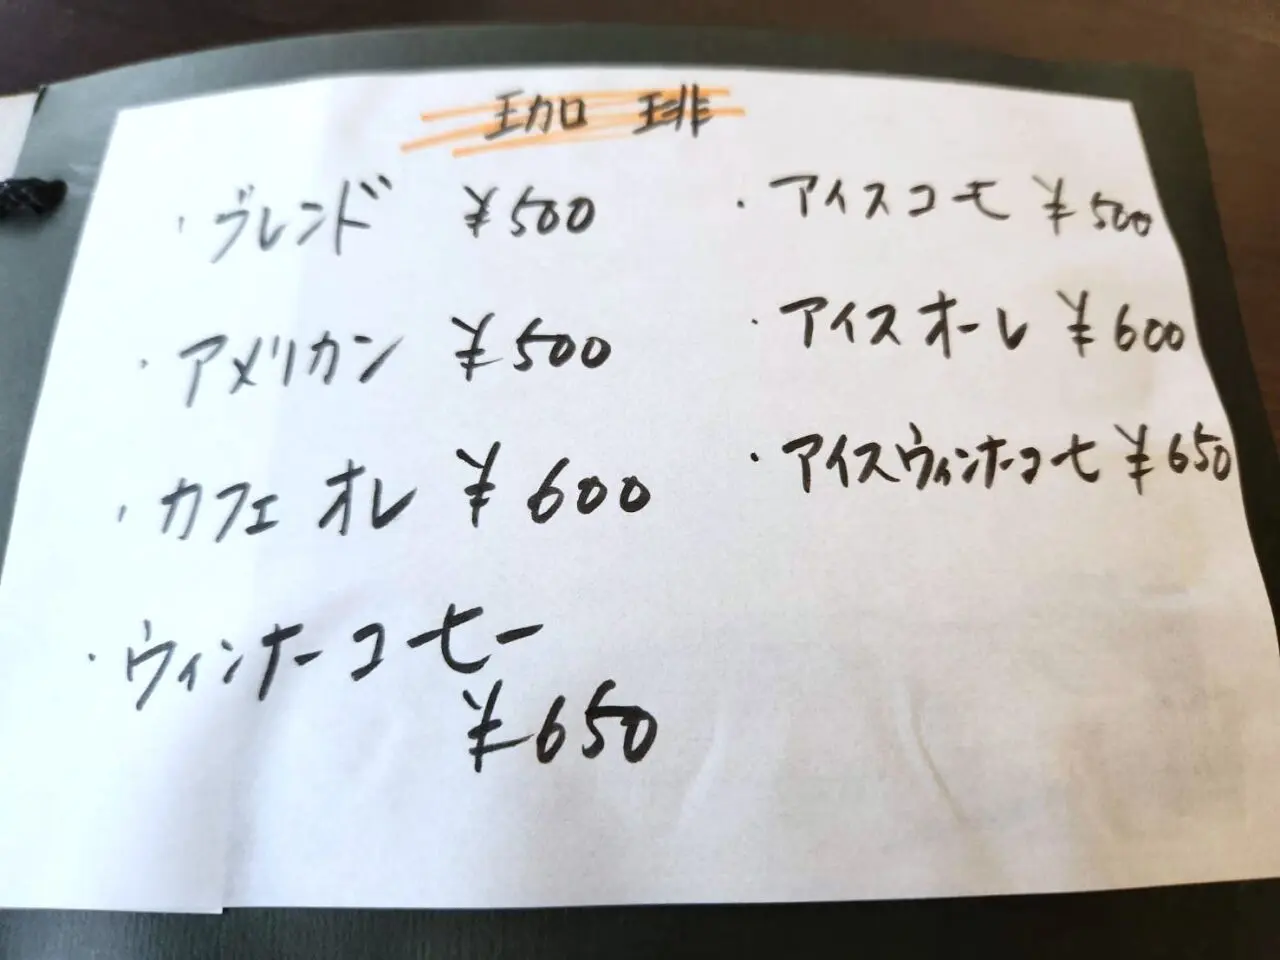 珈琲
・ブレンド ¥500
・アメリカン ¥500
・カフェオレ ¥600
・ウィンナーコーヒー
¥650
・アイスコーヒー ¥500
・アイスオーレ ¥600
・アイスウィンナーコーヒー ¥650